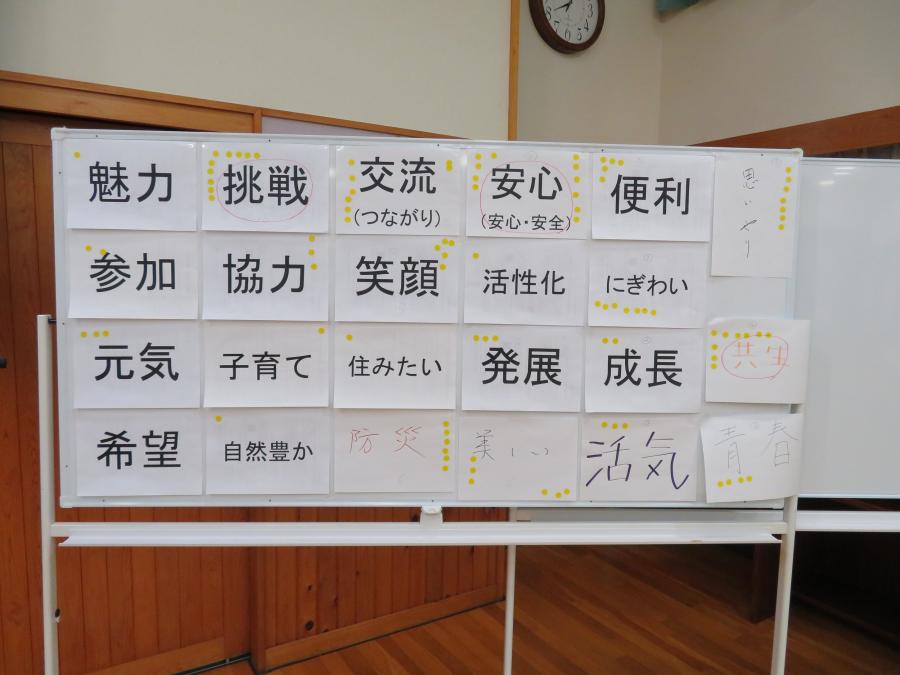 魅力
挑戦
交流
(つながり)
安心
(安心・安全)
便利
思いやり
参加
協力
笑顔
活性化
にぎわい
元気
子育て
住みたい
発展
成長
共生
希望
自然豊か
防災
美しい
活気
青春